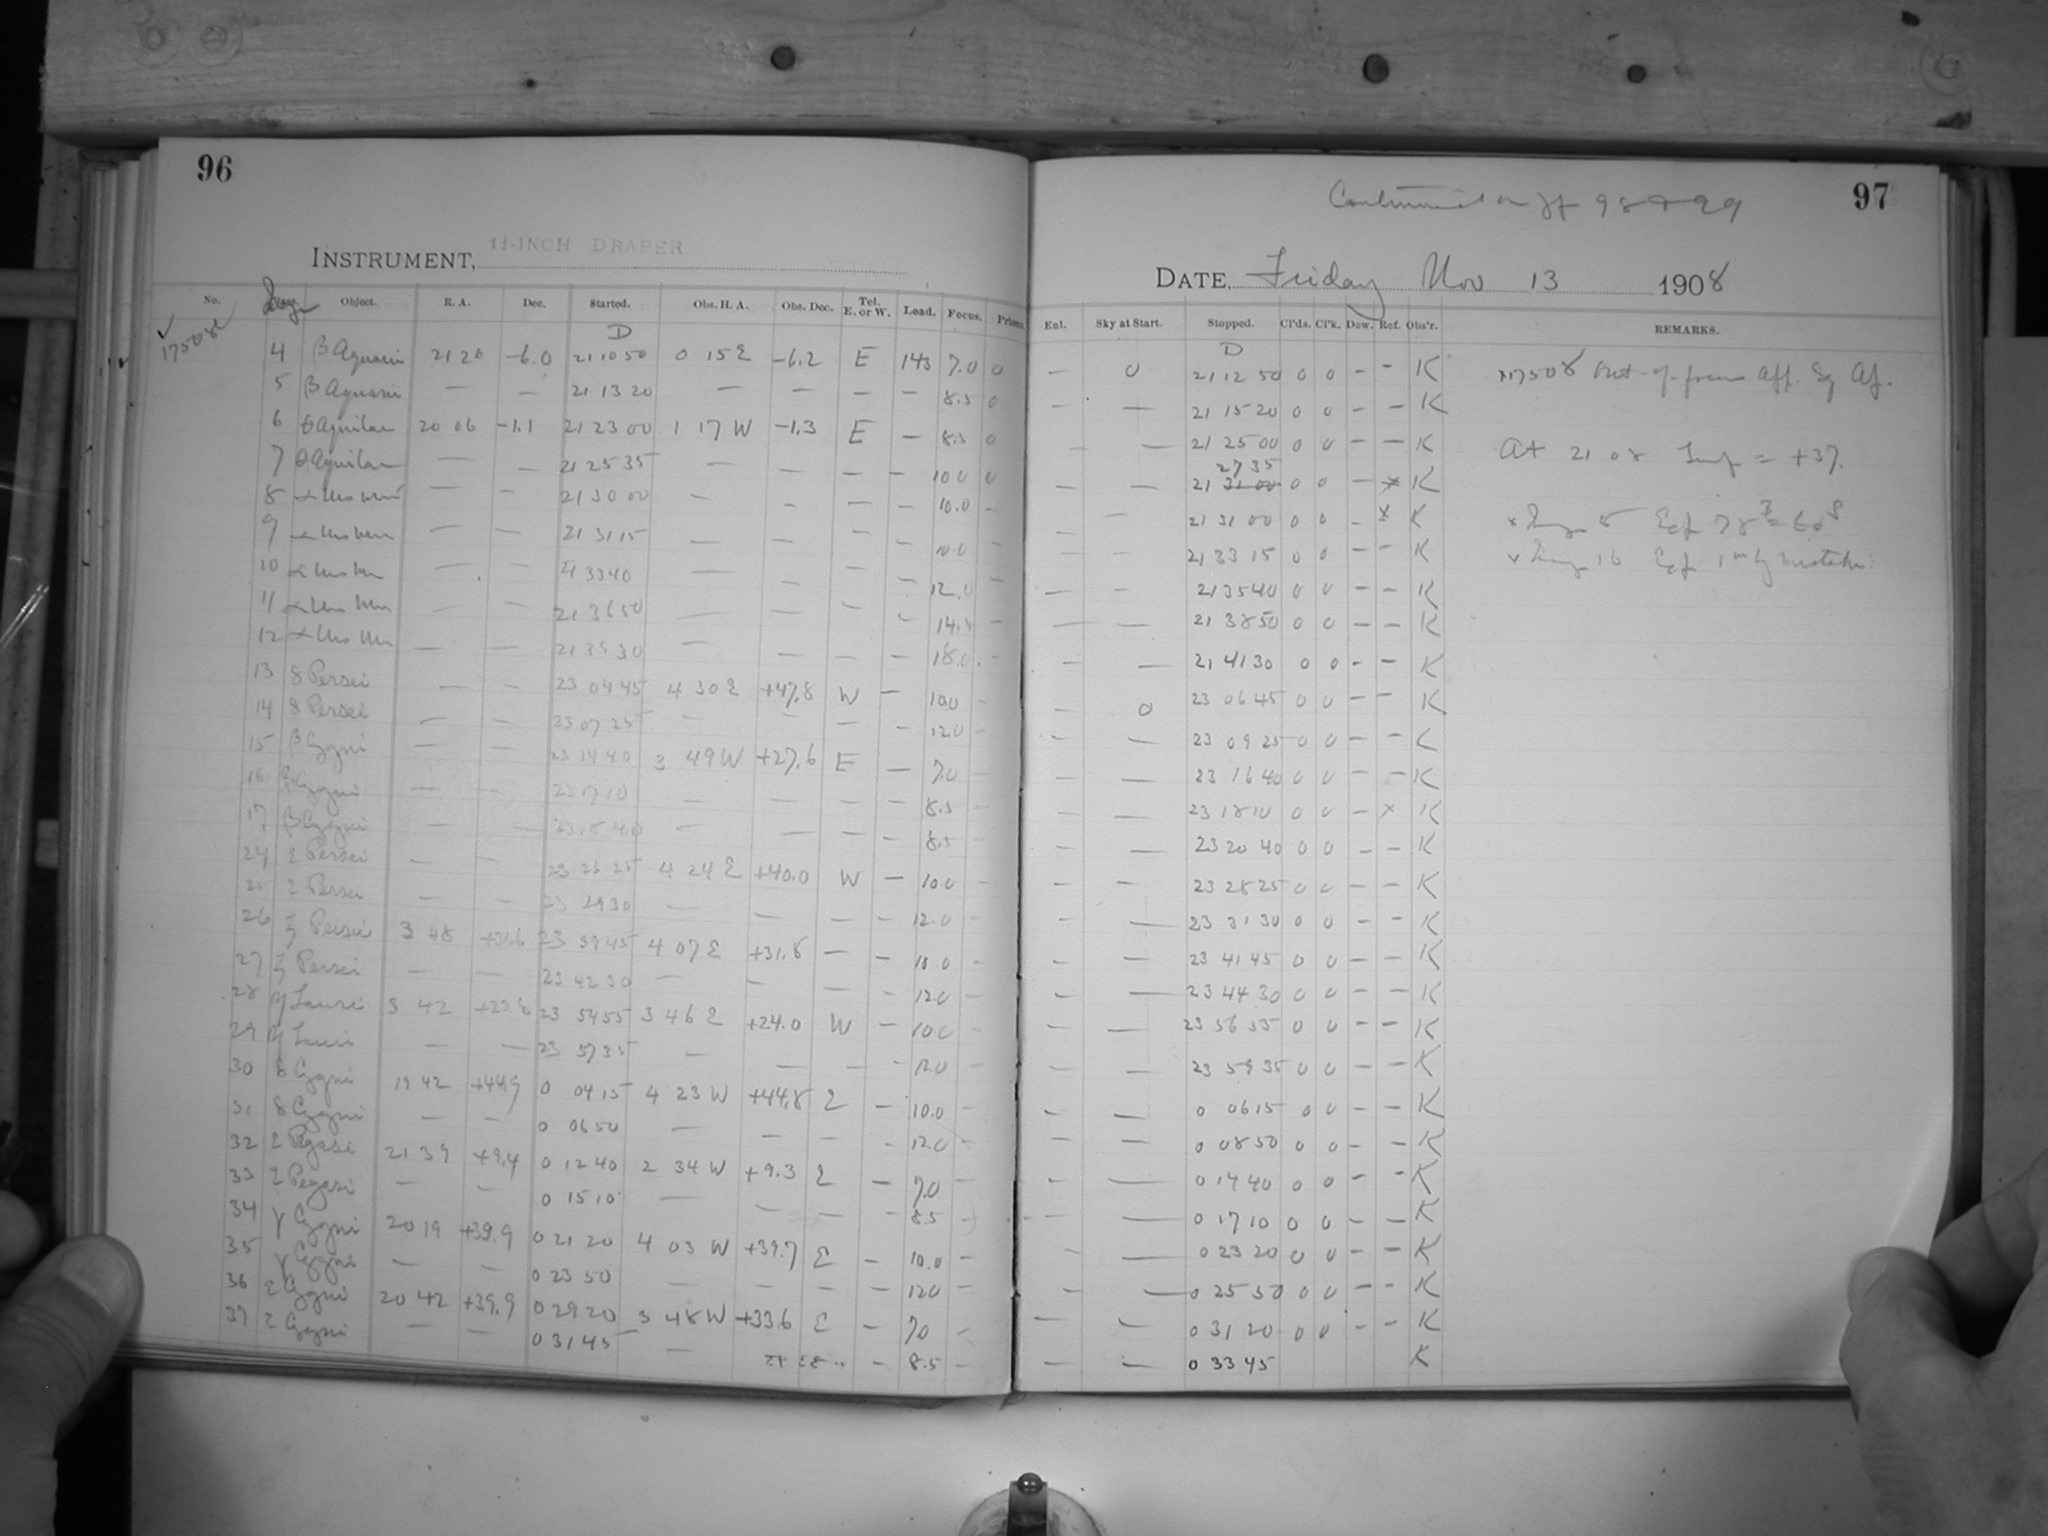 96
INSTRUMENT, 11-INCH DRAPER
No. Object. R. A. Dec. Started. Obs. H. A. Obs. Dec. Tel. E. or W. Load. Focus. Prisms.
D
4 β Aquarii 21 26 -6.0 21 10 50 0 15 E -6.2 E 143 7.0 0
5 β Aquarii — — 21 13 20 — — — — 8.5 0
6 θ Aquilae 20 06 -1.1 21 23 00 1 17 W -1.3 E — 8.5 0
7 θ Aquilae — — 21 25 35 — — — — 10.0 0
8 21 30 00 — — — — 10.0 -
9 — — 21 31 15 — — — — 10.0
10 — — 21 33 40 — — — — 12.0
11 21 36 50 — — — — 14.5 -
12 — — 21 39 30 — — — — 18.0 -
13 δ Persei — — 23 04 45 4 30 E +47.8 W — 10.0 -
14 δ Persei — — 23 07 25 — — — — 12.0 -
15 β Cygni — — 23 14 40 3 49 W +27.6 E — 7.0 -
16 β Cygni — — 23 17 10 — — — — 8.5 -
17 β Cygni — — 23 18 40 — — — — 8.5
24 ε Persei — — 23 26 25 4 24 E +40.0 W — 10.0 -
ε Persei — — 23 29 30 — — — — 12.0
26 ξ Persei 3 48 +31.6 23 39 45 4 07 E +31.8 — — 10.0 -
27 ξ Persei — — 23 42 30 — — — — 12.0 -
28 η Tauri 3 42 23 54 55 3 46 E +24.0 W — 10.0 -
29 η Tauri — — 23 57 35 — — — - 12.0
30 δ Cygni 19 42 +44.9 0 04 15 4 23 W +44.8 E — 10.0 -
31 δ Cygni — — 0 06 50 — — — - 12.0 -
32 ε Pegasi 21 39 +9.4 0 12 40 2 34 W +9.3 E — 7.0 -
33 ε Pegasi — — 0 15 10 — — — - 8.5 -
34 γ Cygni 20 19 +39.9 0 21 20 4 03 W +39.7 E - 10.0 -
35 γ Cygni — — 0 23 50 — — — - 12.0 -
36 ε Cygni 20 42 +39.9 0 29 20 3 48 W +33.6 E — 7.0 -
37 ε Cygni — — 0 31 45 — - 8.5 -
97
Continued on pp 98 + 99
DATE, Friday Nov 13 1908
Enl. Sky at Start. Stopped. Cl'ds. Cl'k. Dew. Ref. Obs'r. REMARKS.
D
— 0 21 12 50 0 0 - - K
— — 21 15 20 0 0 - - K
— — 21 25 00 0 0 - - K
27 35
— — 21 31 00 0 0 - x K
— 21 31 00 0 0 - x K
— — 21 33 15 0 0 - - K
— — 21 35 40 0 0 - - K
— — 21 38 50 0 0 - - K
— — 21 41 30 0 0 - - K
— 0 23 06 45 0 0 - - K
— — 23 09 25 0 0 - - K
— — 23 16 40 0 0 - - K
— — 23 18 10 0 0 - x K
— — 23 20 40 0 0 - - K
— — 23 28 25 0 0 - - K
— — 23 31 30 0 0 - - K
— — 23 41 45 0 0 - - K
— — 23 44 30 0 0 - - K
— — 23 56 55 0 0 - - K
— — 23 59 35 0 0 - - K
— — 0 06 15 0 0 - - K
— — 0 08 50 0 0 - - K
— — 0 14 40 0 0 - - K
— — 0 17 10 0 0 - - K
— — 0 23 20 0 0 - - K
— — 0 25 50 0 0 - - K
— — 0 31 20 0 0 - - K
— — 0 33 45 K
Out of focus
At 21 08 Temp = +37.
1m by mistake.